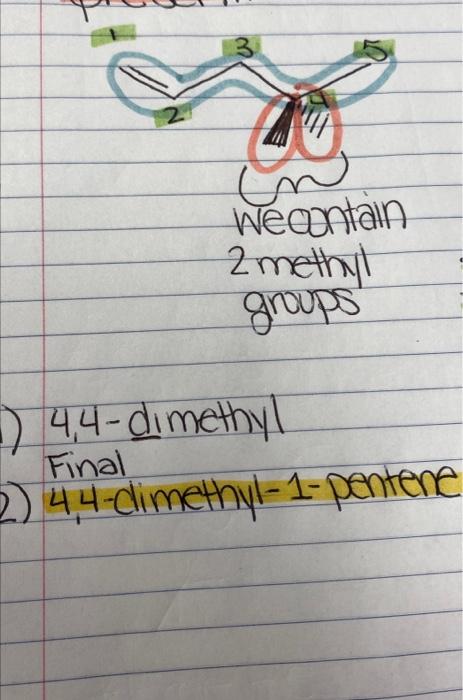 1
3
5
2
4
we contain
2 methyl
groups
1) 4,4-dimethyl
Final
2) 4,4-dimethyl-1-pentene